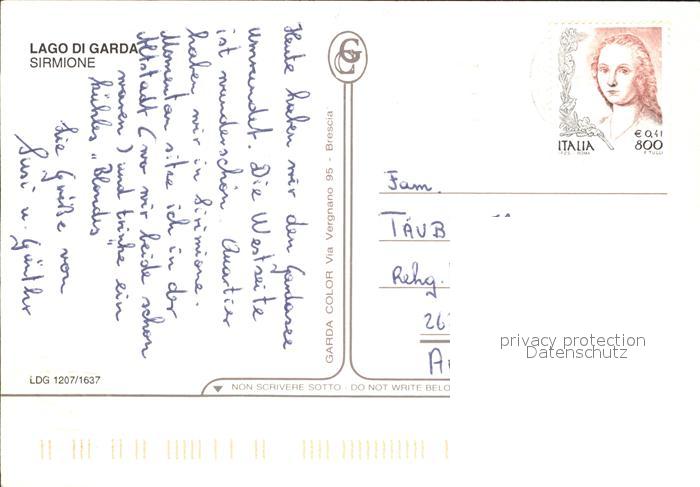 LAGO DI GARDA
SIRMIONE
Heute haben wir den Gardasee
umrundet. Die Westseite
ist wunderschön. Quartier
haben wir in Sirmione.
Momentan sitze ich in der
Altstadt (wo wir beide schon
waren) und trinke ein
kühles "Blondes"
Liebe Grüße von
Susi u. Günther
LDG 1207/1637
GC
GARDA COLOR Via Vergnano 95 - Brescia
NON SCRIVERE SOTTO - DO NOT WRITE BELO
ITALIA
€ 0,41
800
Fam.
TÄUB
Rehg.
privacy protection
Datenschutz